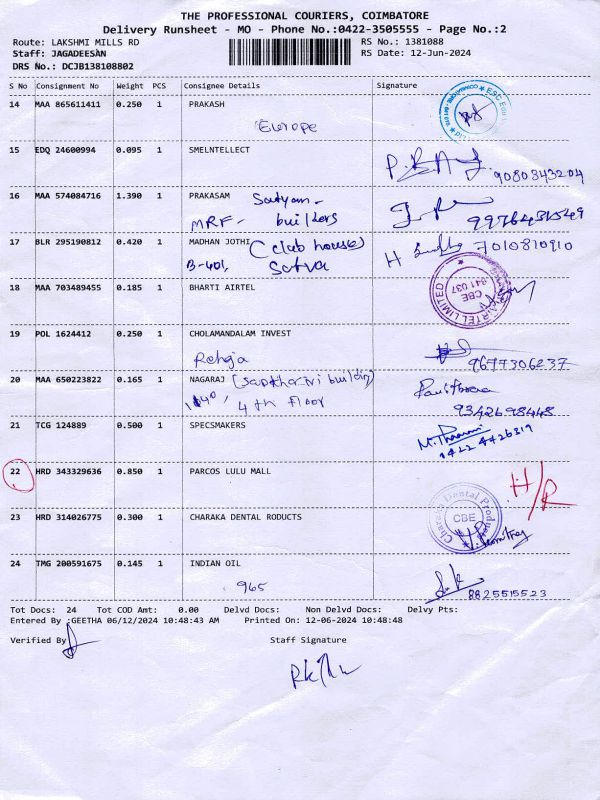 THE PROFESSIONAL COURIERS, COIMBATORE
Delivery Runsheet - MO - Phone No.:0422-3505555 - Page No.:2
Route: LAKSHMI MILLS RD
RS No.: 1381088
Staff: JAGADEESAN
RS Date: 12-Jun-2024
DRS No.: DCJB138108802
S No Consignment No Weight PCS Consignee Details Signature
14 MAA 865611411 0.250 1 PRAKASH
Europe
15 EDQ 24600994 0.095 1 SMELNTELLECT
9080843204
16 MAA 574084716 1.390 1 PRAKASAM Satyam-
MRF- builders
9976431549
17 BLR 295190812 0.420 1 MADHAN JOTHI (club house)
B-401, Satva
H 7010810910
18 MAA 703489455 0.185 1 BHARTI AIRTEL
AIRTEL LIMITED CBE 641 037
19 POL 1624412 0.250 1 CHOLAMANDALAM INVEST
Rehja
9677306237
20 MAA 650223822 0.165 1 NAGARAJ (Sapthagiri building)
4th floor
9342698448
21 TCG 124889 0.500 1 SPECSMAKERS
0422 4426319
22 HRD 343329636 0.850 1 PARCOS LULU MALL
H/R
23 HRD 314026775 0.300 1 CHARAKA DENTAL RODUCTS
Charaka Dental Products CBE
24 TMG 200591675 0.145 1 INDIAN OIL
965
8825515523
Tot Docs: 24 Tot COD Amt: 0.00 Delvd Docs: Non Delvd Docs: Delvy Pts:
Entered By :GEETHA 06/12/2024 10:48:43 AM Printed On: 12-06-2024 10:48:48
Verified By Staff Signature